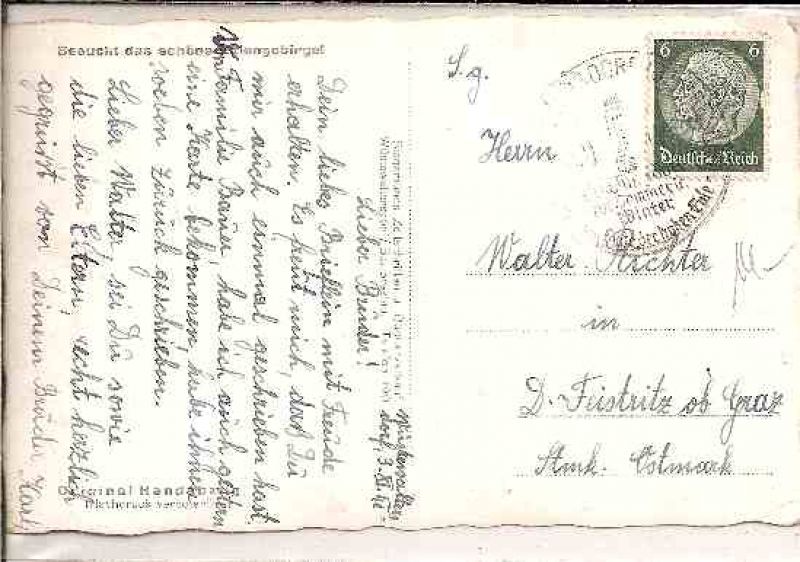 Besucht das schöne
S. g.
Herrn
Walter Richter
in
D. Feistritz ob Graz
Stmk. Ostmark
6 6
Deutsches Reich
Sommer
Winter
Wüstewalters
dorf, 3. XI. 41
Lieber Bruder!
Dein liebes Brieflein mit Freude
erhalten. Es freut mich, daß Du
mir auch einmal geschrieben hast.
Familie Brauer, habe ich auch gestern
eine Karte bekommen, habe ihnen
soeben zurück geschrieben.
Lieber Walter sei Du sowie
die lieben Eltern, recht herzlich
gegrüßt von Deinem Bruder Karl
Original Handabzug